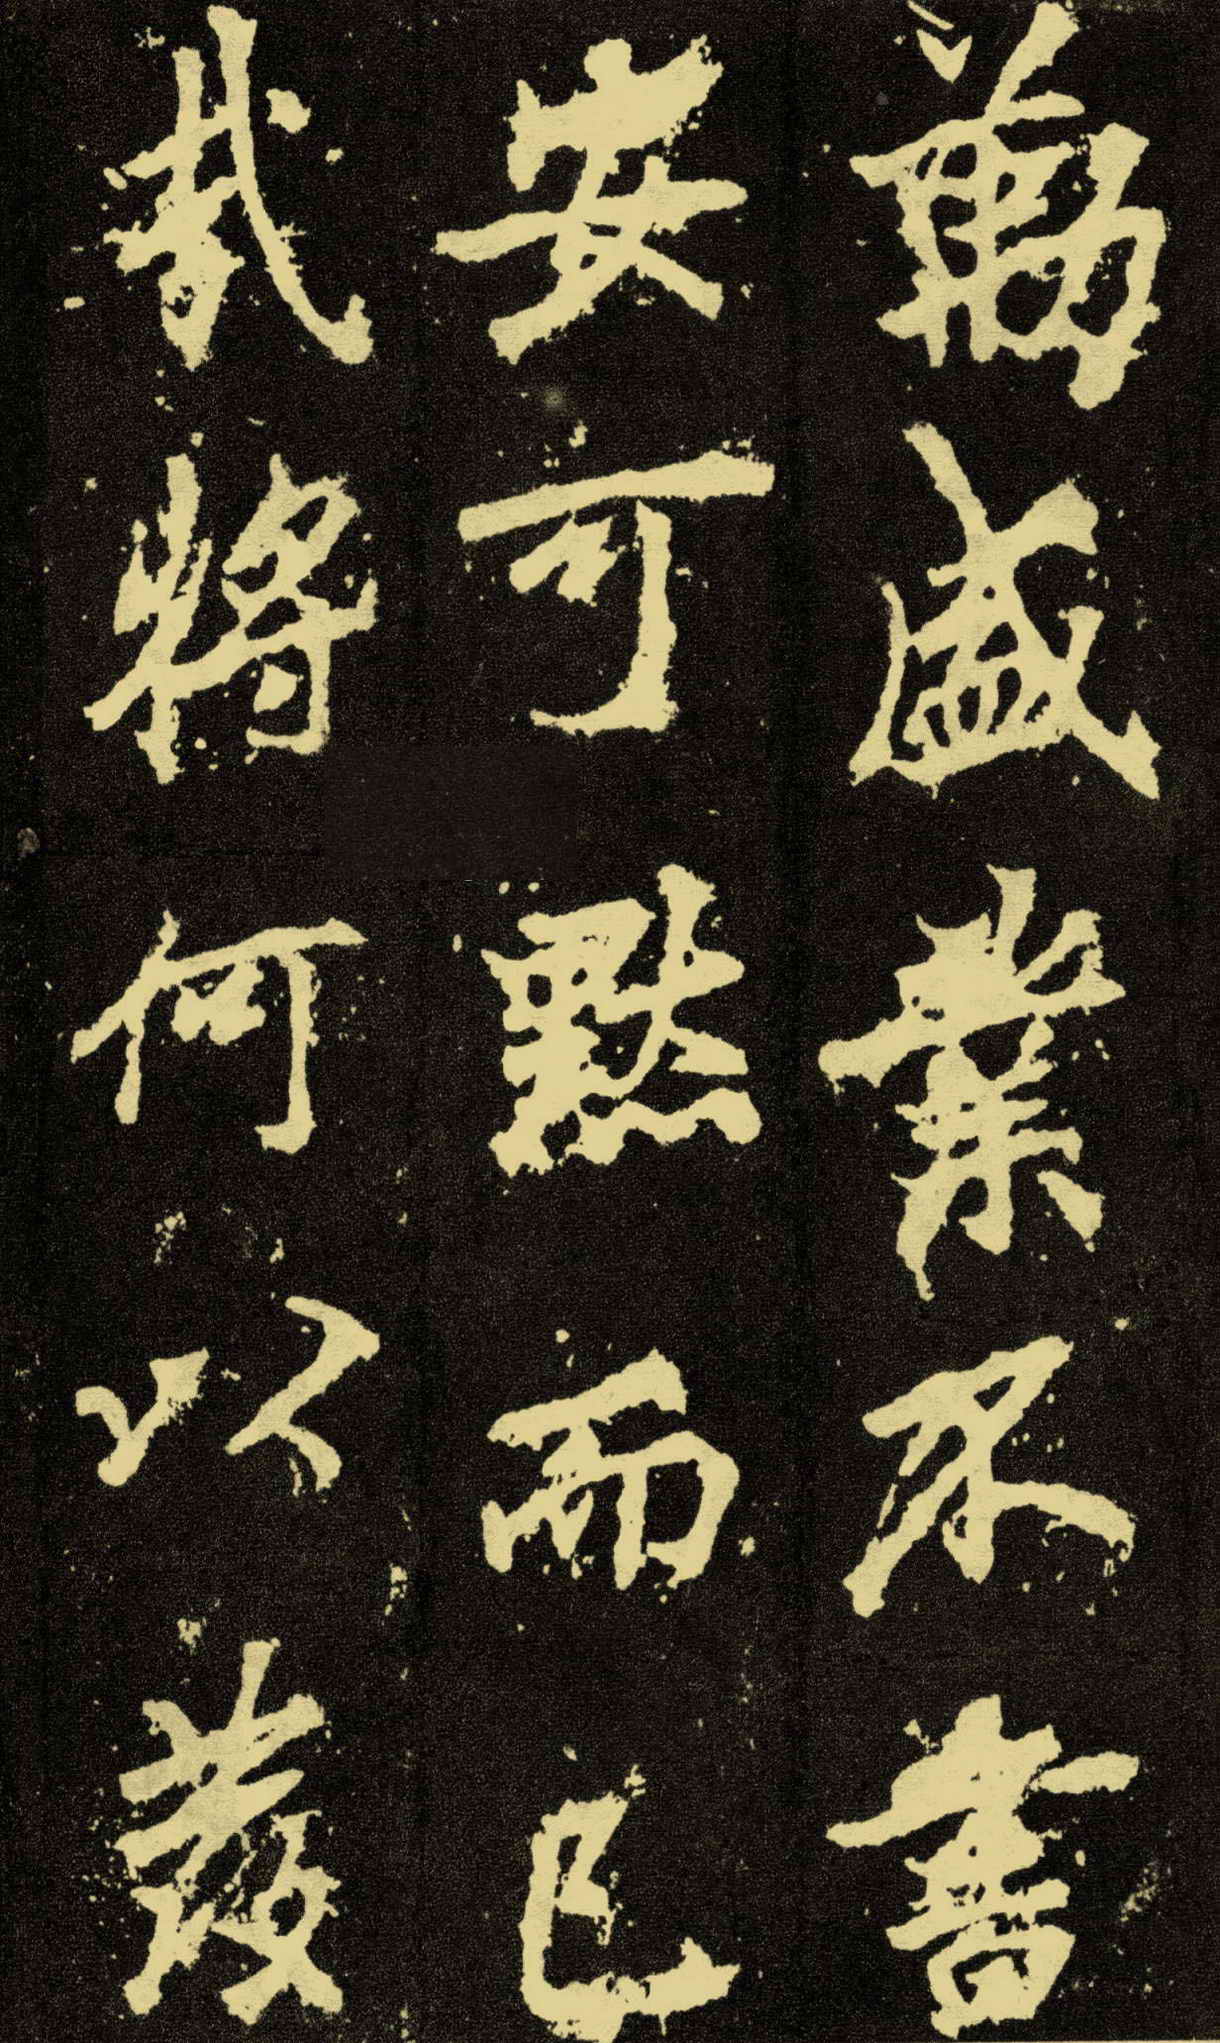 盛業不書
安可默而已
哉將何以發